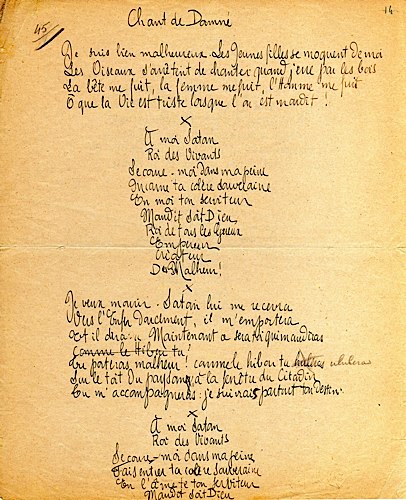 14
45
Chant de Damné
Je suis bien malheureux. Les Jeunes filles se moquent de moi
Les Oiseaux s'arrêtent de chanter quand j'erre par les bois
La bête me fuit, la femme me fuit, l'Homme me fuit
Ô que la Vie est triste lorsque l'on est maudit !
x
A moi Satan
Roi des Vivants
Secoure-moi dans ma peine
Incarne ta colère souveraine
En moi ton serviteur
Maudit soit Dieu
Roi de tous les
Empereur
Créateur
Du Malheur !
x
Je veux mourir - Satan lui me recevra
Vers l'Enfer ardement, il m'emportera
Et il dira : Maintenant à toi qui maudiras
Comme le Hibou tu
Tu porteras malheur ! comme le hibou tu ululeras
Sur le toit du Paysan, à la fenêtre du Citadin
Tu m'accompagneras : je suivrais partout ton destin.
x
A moi Satan
Roi des Vivants
Secoure-moi dans ma peine
Fais entrer ta colère souveraine
En l'âme de ton serviteur
Maudit soit Dieu